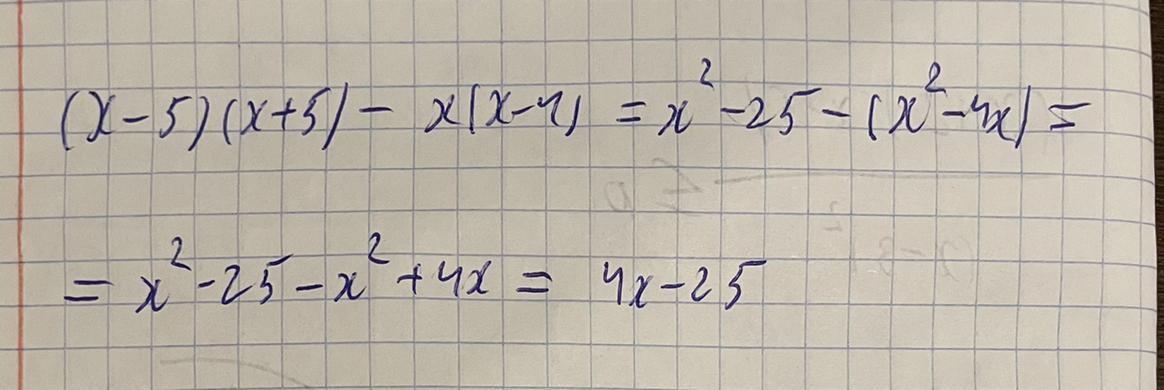 (x-5)(x+5) - x(x-4) = x² - 25 - (x² - 4x) =
= x² - 25 - x² + 4x = 4x - 25